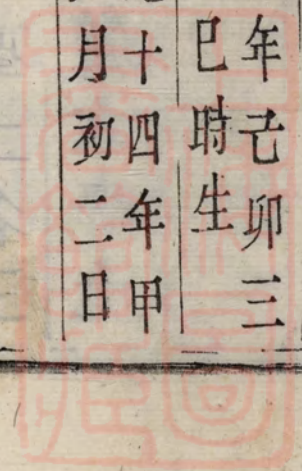 年己卯三
巳時生
十四年甲
月初二日